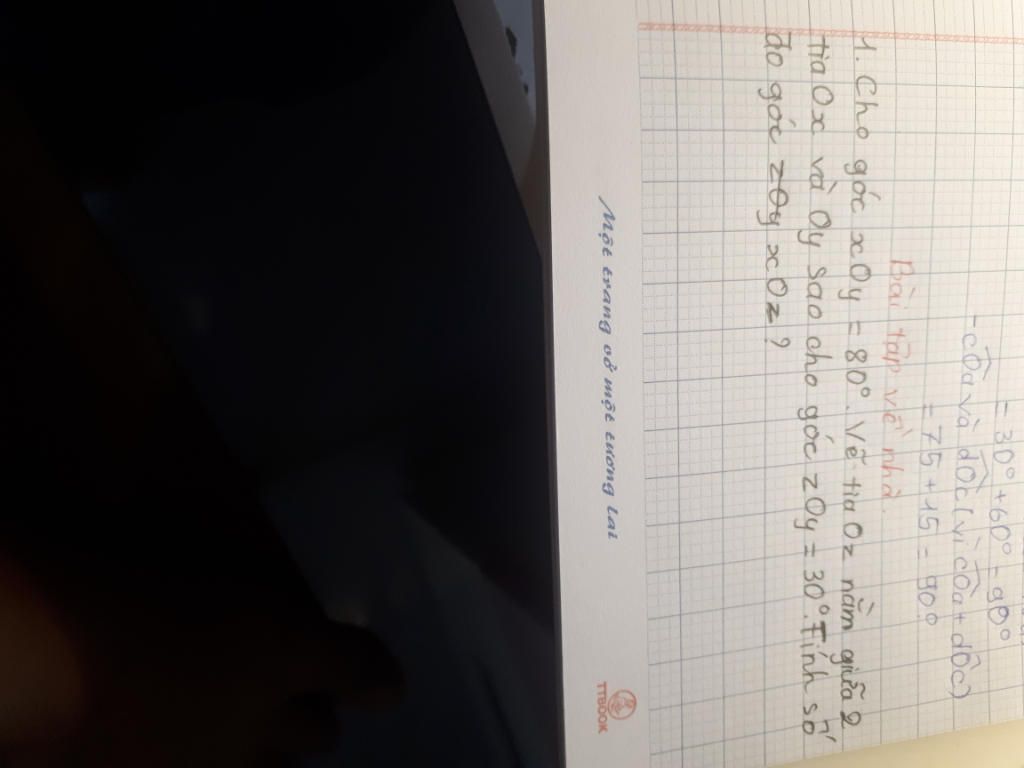 = 30° + 60° = 90°
- cÔa và dÔc (vì cÔa + dÔc)
= 75 + 15 = 90°
Bài tập về nhà.
1. Cho góc xOy = 80°. Vẽ tia Oz nằm giữa 2
tia Ox và Oy sao cho góc zOy = 30°. Tính số
đo góc zOy xOz?
Một trang vở một tương lai
TTBOOK